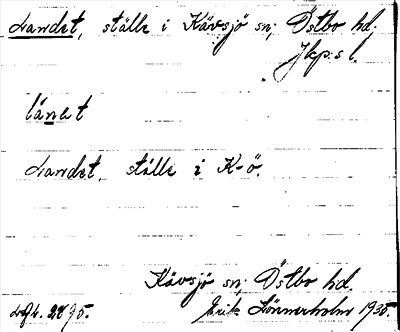 Landet, ställe i Kävsjö sn; Östbo hd.
Jkp:s l.
länet
Landet, ställe i K-ö.
Kävsjö sn; Östbo hd.
Erik Lönnerholm 1935.